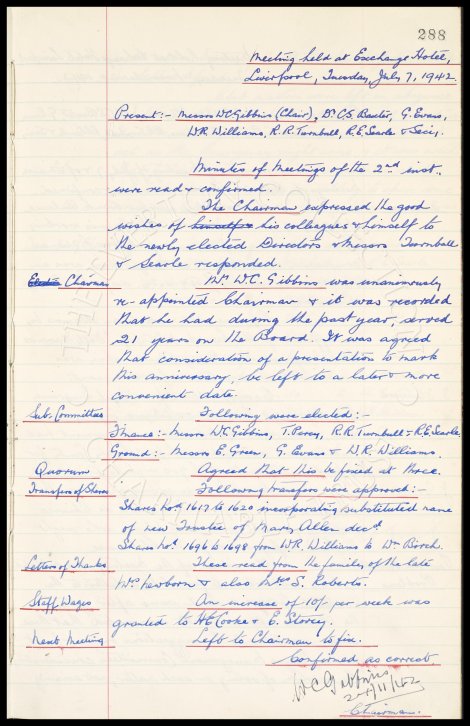 288
Meeting held at Exchange Hotel,
Liverpool, Tuesday, July 7, 1942.
Present:- Messrs W.C. Gibbins (Chair), Dr C.S. Baxter, G. Evans,
W.R. Williams, R.R. Turnbull, R.E. Searle & Secy.
Minutes of Meetings of the 2nd inst.,
were read & confirmed.
The Chairman expressed the good
wishes of himself & his colleagues & himself to
the newly elected Directors & Messrs Turnbull
& Searle responded.
Chairman Mr. W.C. Gibbins was unanimously
re-appointed Chairman & it was recorded
that he had during the past year, served
21 years on the Board. It was agreed
that consideration of a presentation to mark
this anniversary, be left to a later & more
convenient date.
Sub. Committees Following were elected:-
Finance:- Messrs W.C. Gibbins, T. Percy, R.R. Turnbull & R.E. Searle.
Ground:- Messrs E. Green, G. Evans & W.R. Williams.
Quorum Agreed that this be fixed at three.
Transfers of Shares Following transfers were approved:-
Shares Nos 1617 to 1620 incorporating substituted name
of new Trustee of Mary Allen decd
Shares Nos. 1696 to 1698 from W.R. Williams to Wm Birch.
Letters of Thanks These read from the families of the late
Mr. Newborn & also Mrs S. Roberts.
Staff Wages An increase of 10/- per week was
granted to H.E. Cooke & E. Storey.
Next Meeting Left to Chairman to fix.
Confirmed as correct
W C Gibbins
Chairman.